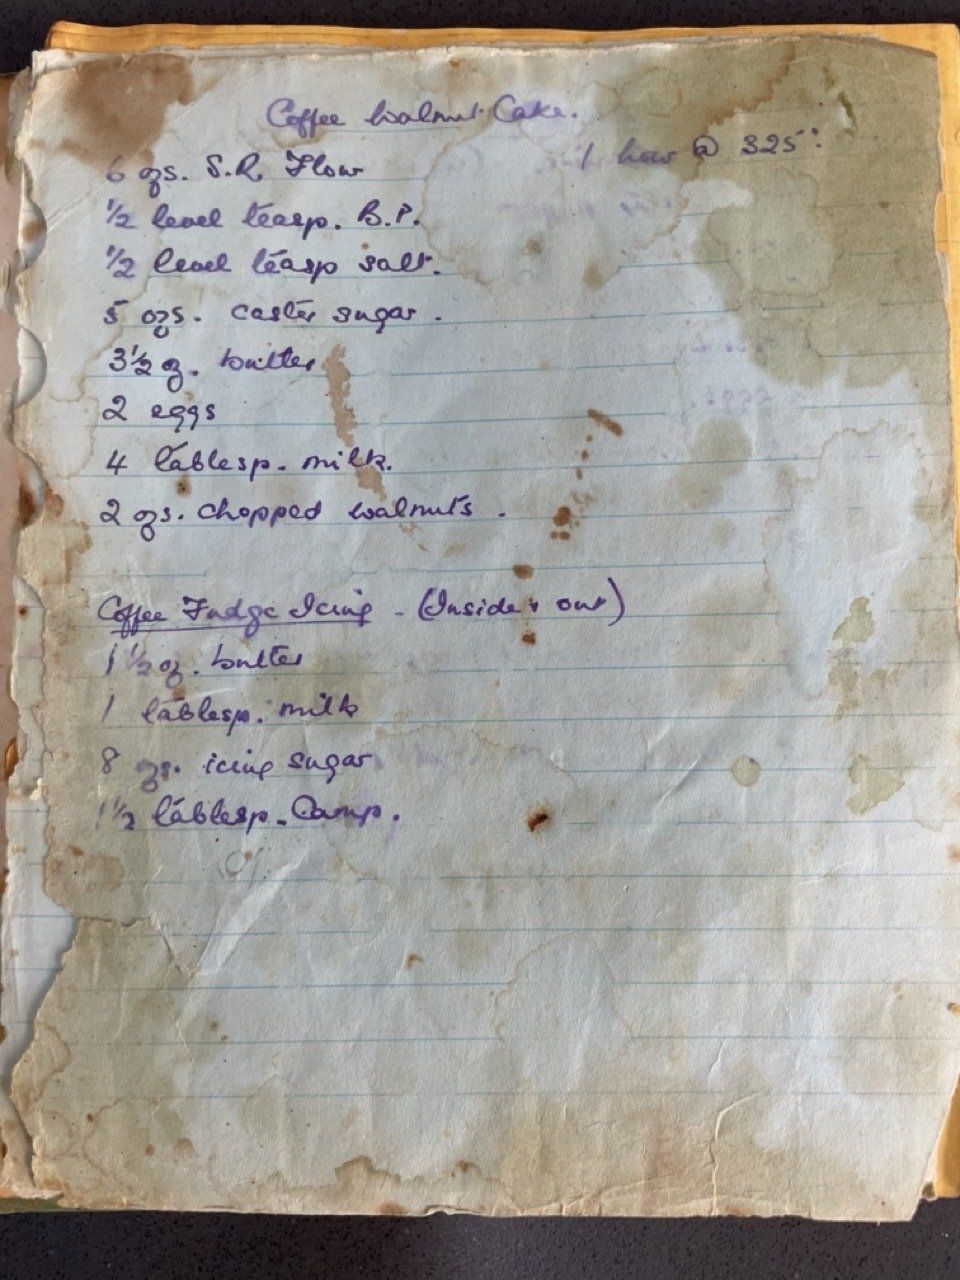 Coffee Walnut Cake.
1 hour @ 325°
6 ozs. S.R. Flour
1/2 level teasp. B.P.
1/2 level teasp salt.
5 ozs. caster sugar.
3 1/2 oz. butter
2 eggs
4 tablesp. milk.
2 ozs. chopped walnuts.
Coffee Fudge Icing - (Inside & out)
1 1/2 oz. butter
1 tablesp. milk
8 ozs. icing sugar
1 1/2 tablesp. Camp.